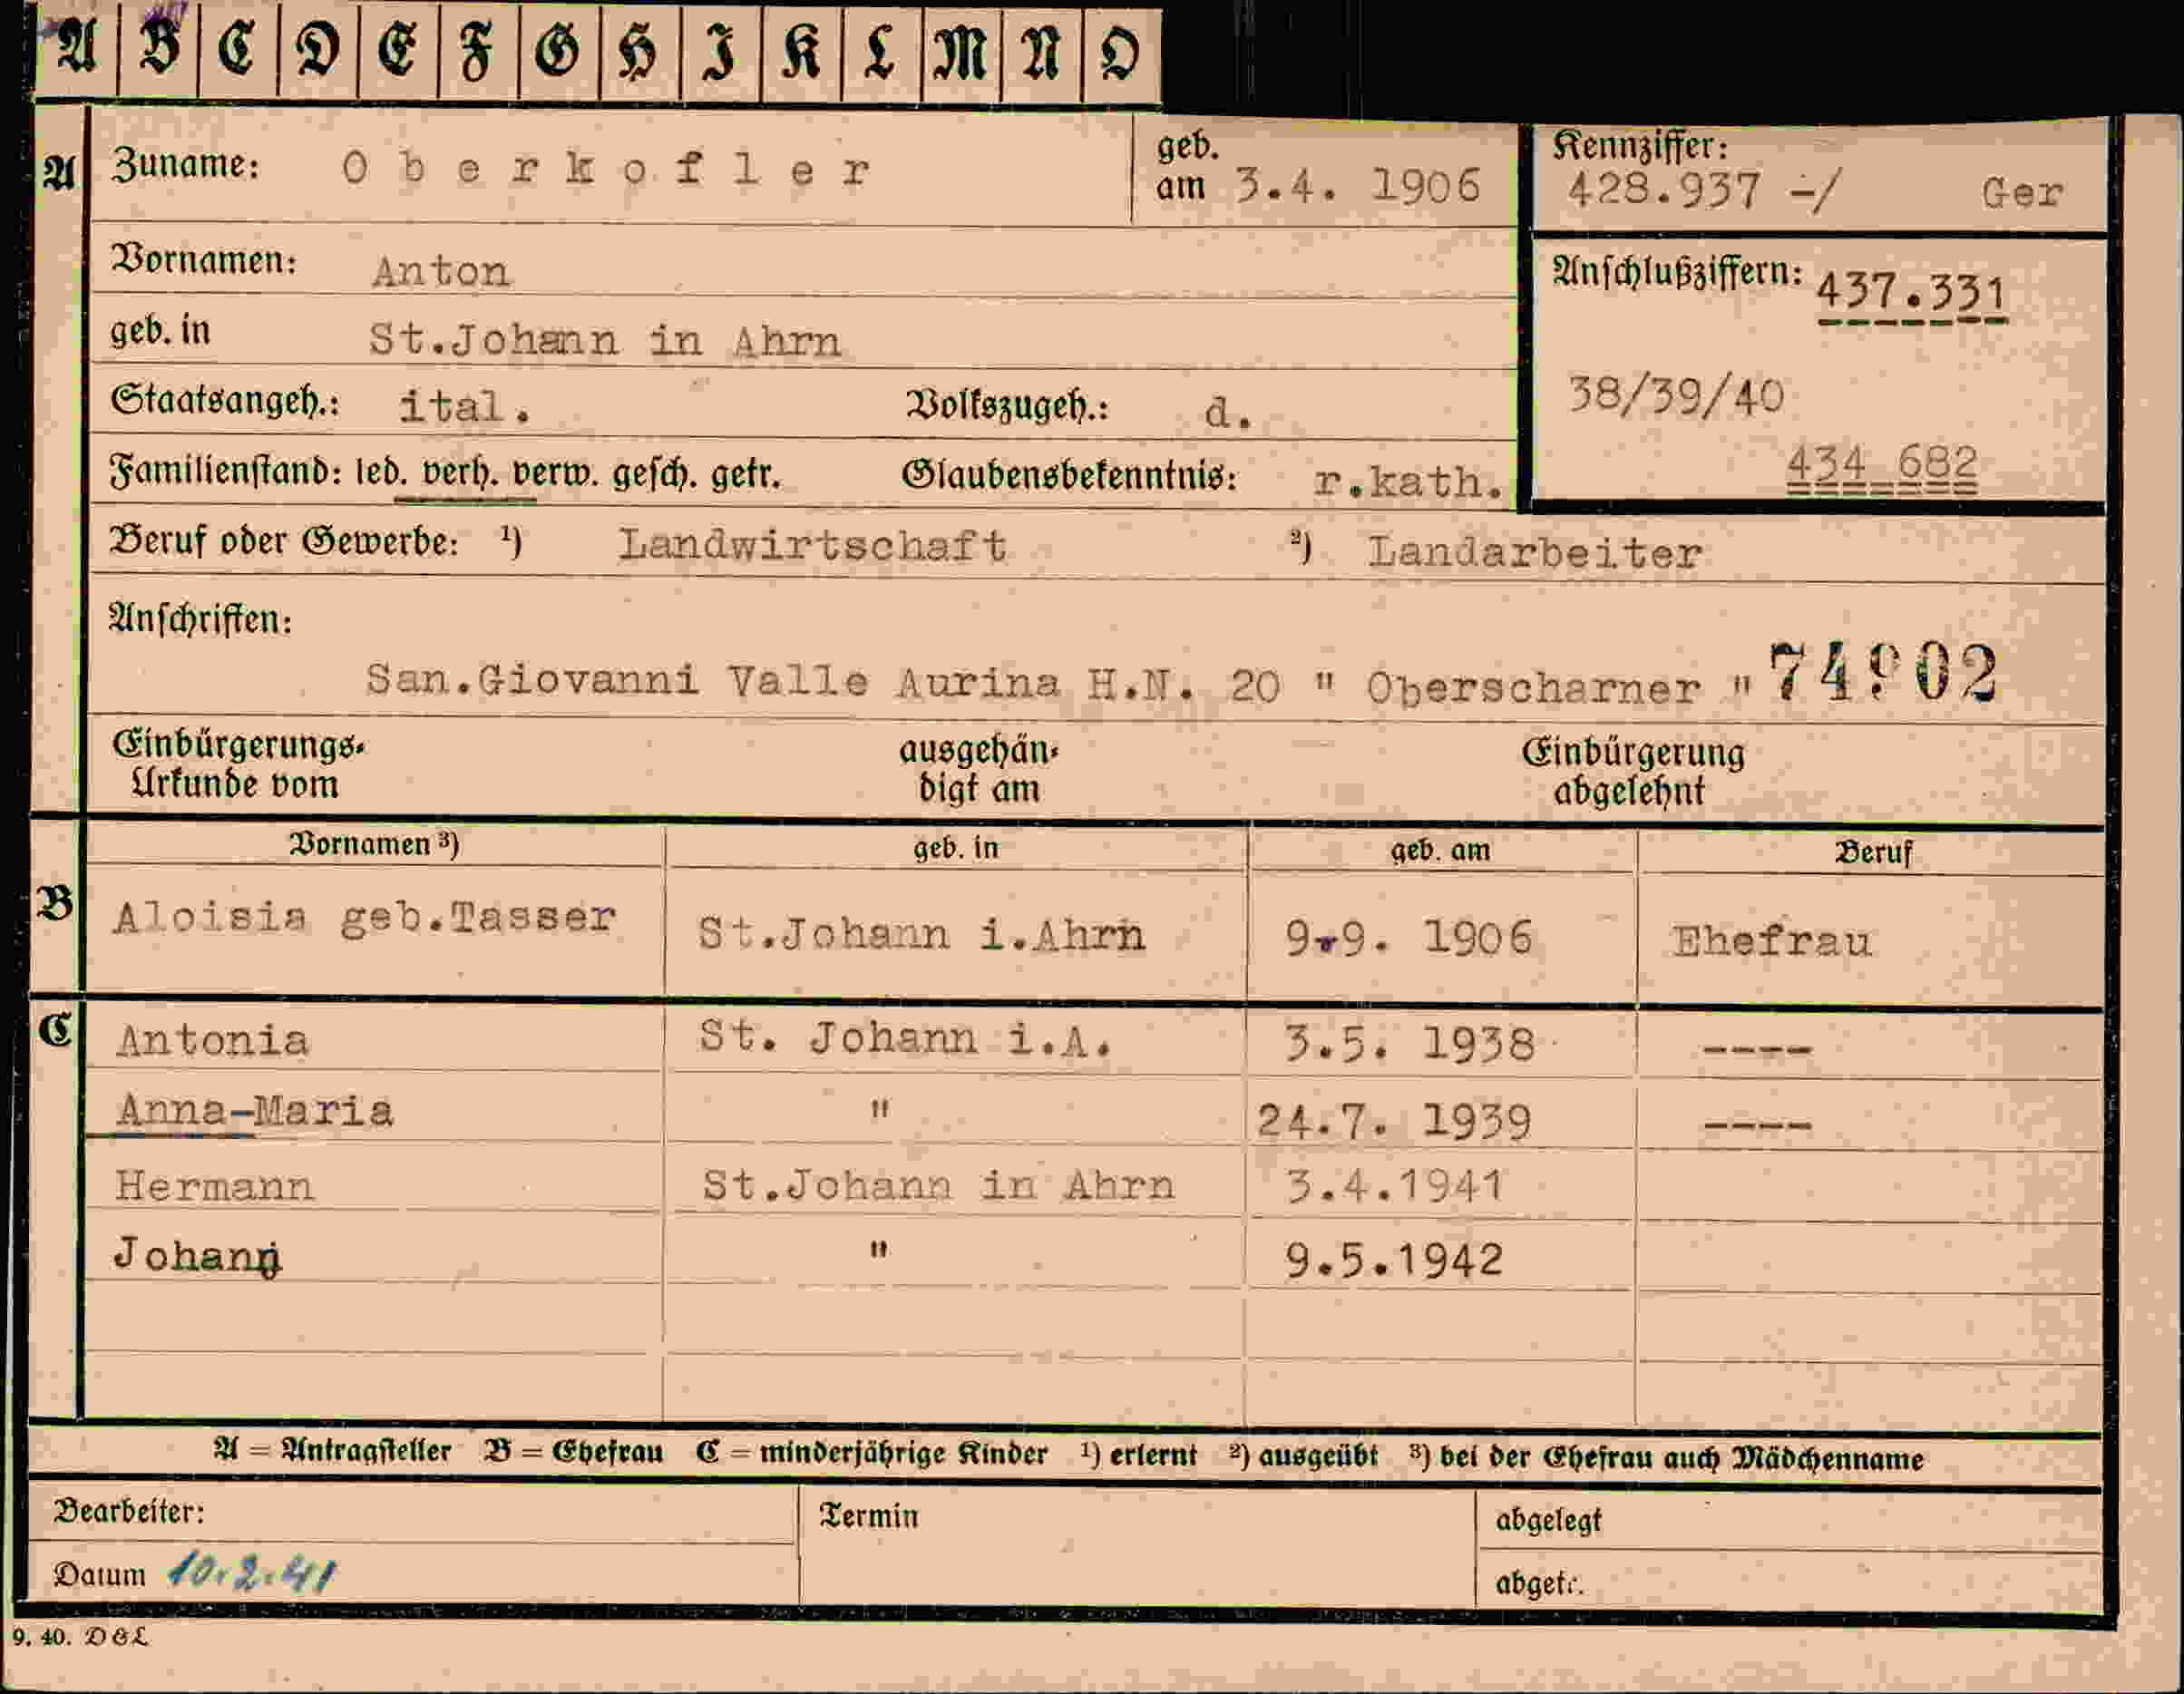 A B C D E F G H I K L M N O
A Zuname: Oberkofler geb. am 3.4. 1906 Kennziffer: 428.937 -/ Ger
Vornamen: Anton Anschlußziffern: 437.331
geb. in St.Johann in Ahrn
Staatsangeh.: ital. Volkszugeh.: d. 38/39/40
Familienstand: led. verh. verw. gesch. getr. Glaubensbekenntnis: r.kath. 434 682
Beruf oder Gewerbe: ¹) Landwirtschaft ²) Landarbeiter
Anschriften:
San.Giovanni Valle Aurina H.N. 20 " Oberscharner "
Einbürgerungs- ausgehän- Einbürgerung
Urkunde vom digt am abgelehnt
Vornamen ³) geb. in geb. am Beruf
B Aloisia geb.Tasser St.Johann i.Ahrn 9.9. 1906 Ehefrau
C Antonia St. Johann i.A. 3.5. 1938 ----
Anna-Maria " 24.7. 1939 ----
Hermann St.Johann in Ahrn 3.4.1941
Johann " 9.5.1942
A = Antragsteller B = Ehefrau C = minderjährige Kinder ¹) erlernt ²) ausgeübt ³) bei der Ehefrau auch Mädchenname
Bearbeiter: Termin abgelegt
Datum 10.2.41 abgetr.
9. 40. DGL